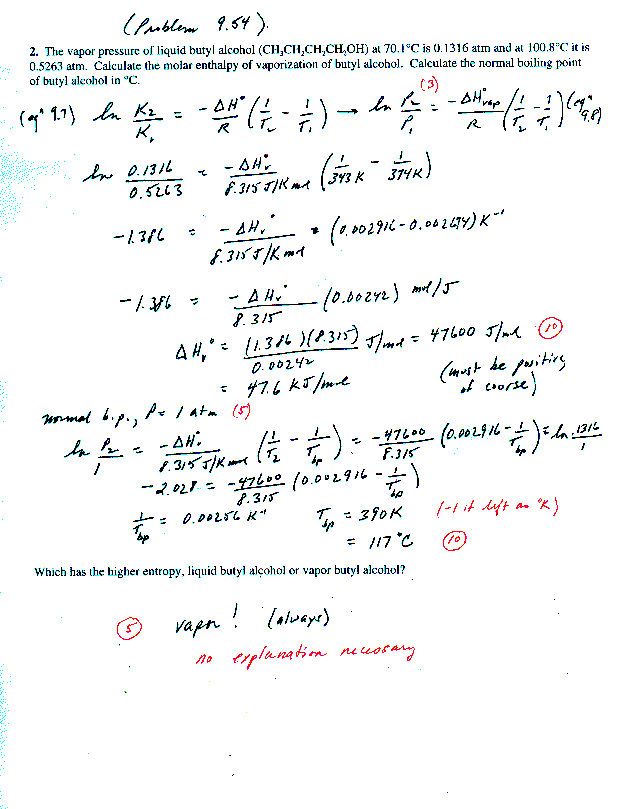 (Problem 9.54).
2. The vapor pressure of liquid butyl alcohol (CH₃CH₂CH₂CH₂OH) at 70.1°C is 0.1316 atm and at 100.8°C it is
0.5263 atm. Calculate the molar enthalpy of vaporization of butyl alcohol. Calculate the normal boiling point
of butyl alcohol in °C.
(3)
(eqⁿ 9.7) ln K₂/K₁ = -ΔH°/R (1/T₂ - 1/T₁) → ln P₂/P₁ = -ΔH°vap/R (1/T₂ - 1/T₁) (eqⁿ 9.8)
ln 0.1316/0.5263 = -ΔHᵥ°/8.315 J/K mol (1/343 K - 1/374 K)
-1.386 = -ΔHᵥ°/8.315 J/K mol · (0.002916 - 0.002674) K⁻¹
-1.386 = -ΔHᵥ°/8.315 (0.00242) mol/J
ΔHᵥ° = (1.386)(8.315)/0.00242 J/mol = 47600 J/mol (10)
= 47.6 KJ/mole (must be positive of course)
normal b.p., P = 1 atm (5)
ln P₂/1 = -ΔHᵥ/8.315 J/K mol (1/T₂ - 1/Tbp) = -47600/8.315 (0.002916 - 1/Tbp) = ln .1316/1
-2.028 = -47600/8.315 (0.002916 - 1/Tbp)
1/Tbp = 0.00256 K⁻¹ Tbp = 390K (-1 if left as °K)
= 117°C (10)
Which has the higher entropy, liquid butyl alcohol or vapor butyl alcohol?
(5) vapor! (always)
no explanation necessary